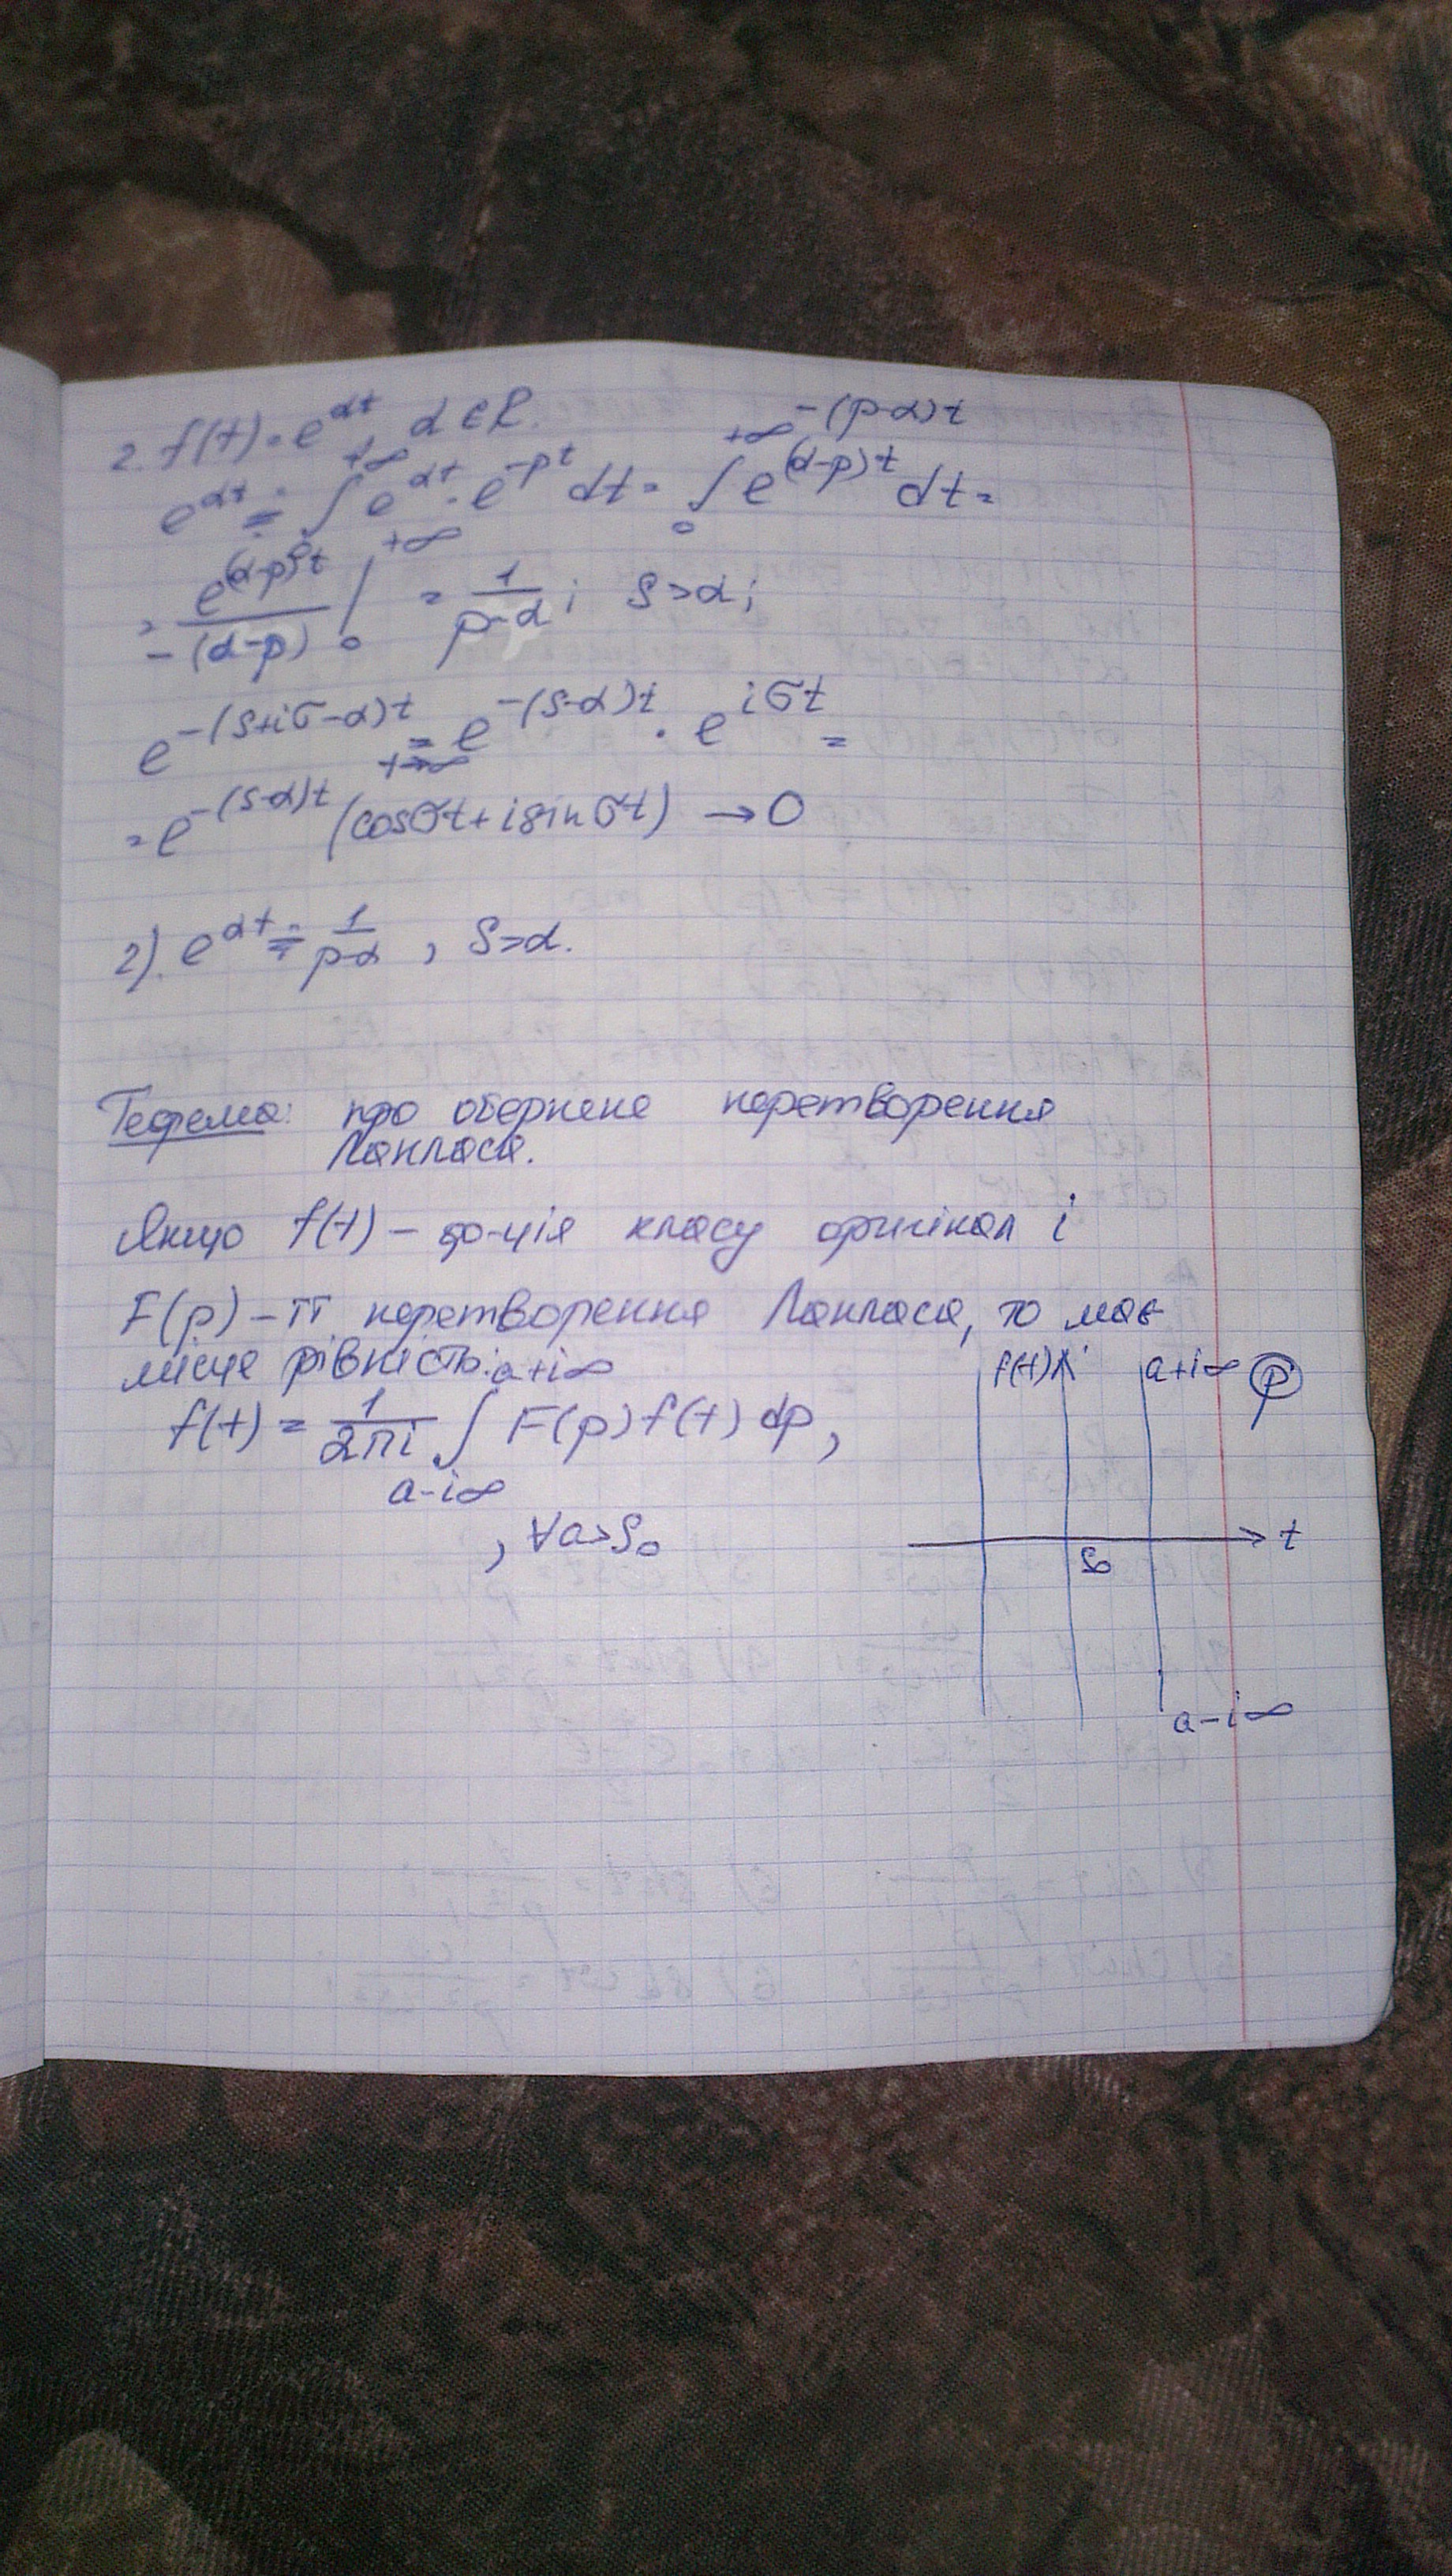 2. f(t) = e^{αt} α ∈ R.
e^{αt} ≓ ∫_0^{+∞} e^{αt} · e^{-pt} dt = ∫_0^{+∞} e^{(α-p)t} dt = -(p-α)t
= e^{(α-p)t} / -(α-p) |_0^{+∞} = 1/(p-α); S>α;
e^{-(S+iσ-α)t} =_{t→∞} e^{-(S-α)t} · e^{iσt} =
= e^{-(S-α)t} (cosσt + i sinσt) → 0
2). e^{αt} ≓ 1/(p-α), S>α.
Теорема: про обернене перетворення
Лапласа.
Якщо f(t) – ф-ція класу оригінал і
F(p) – її перетворення Лапласа, то має
місце рівність:
f(t) = 1/(2πi) ∫_{a-i∞}^{a+i∞} F(p) f(t) dp,
, ∀a>S₀
f(t) a+i∞ p
t
S₀
a-i∞